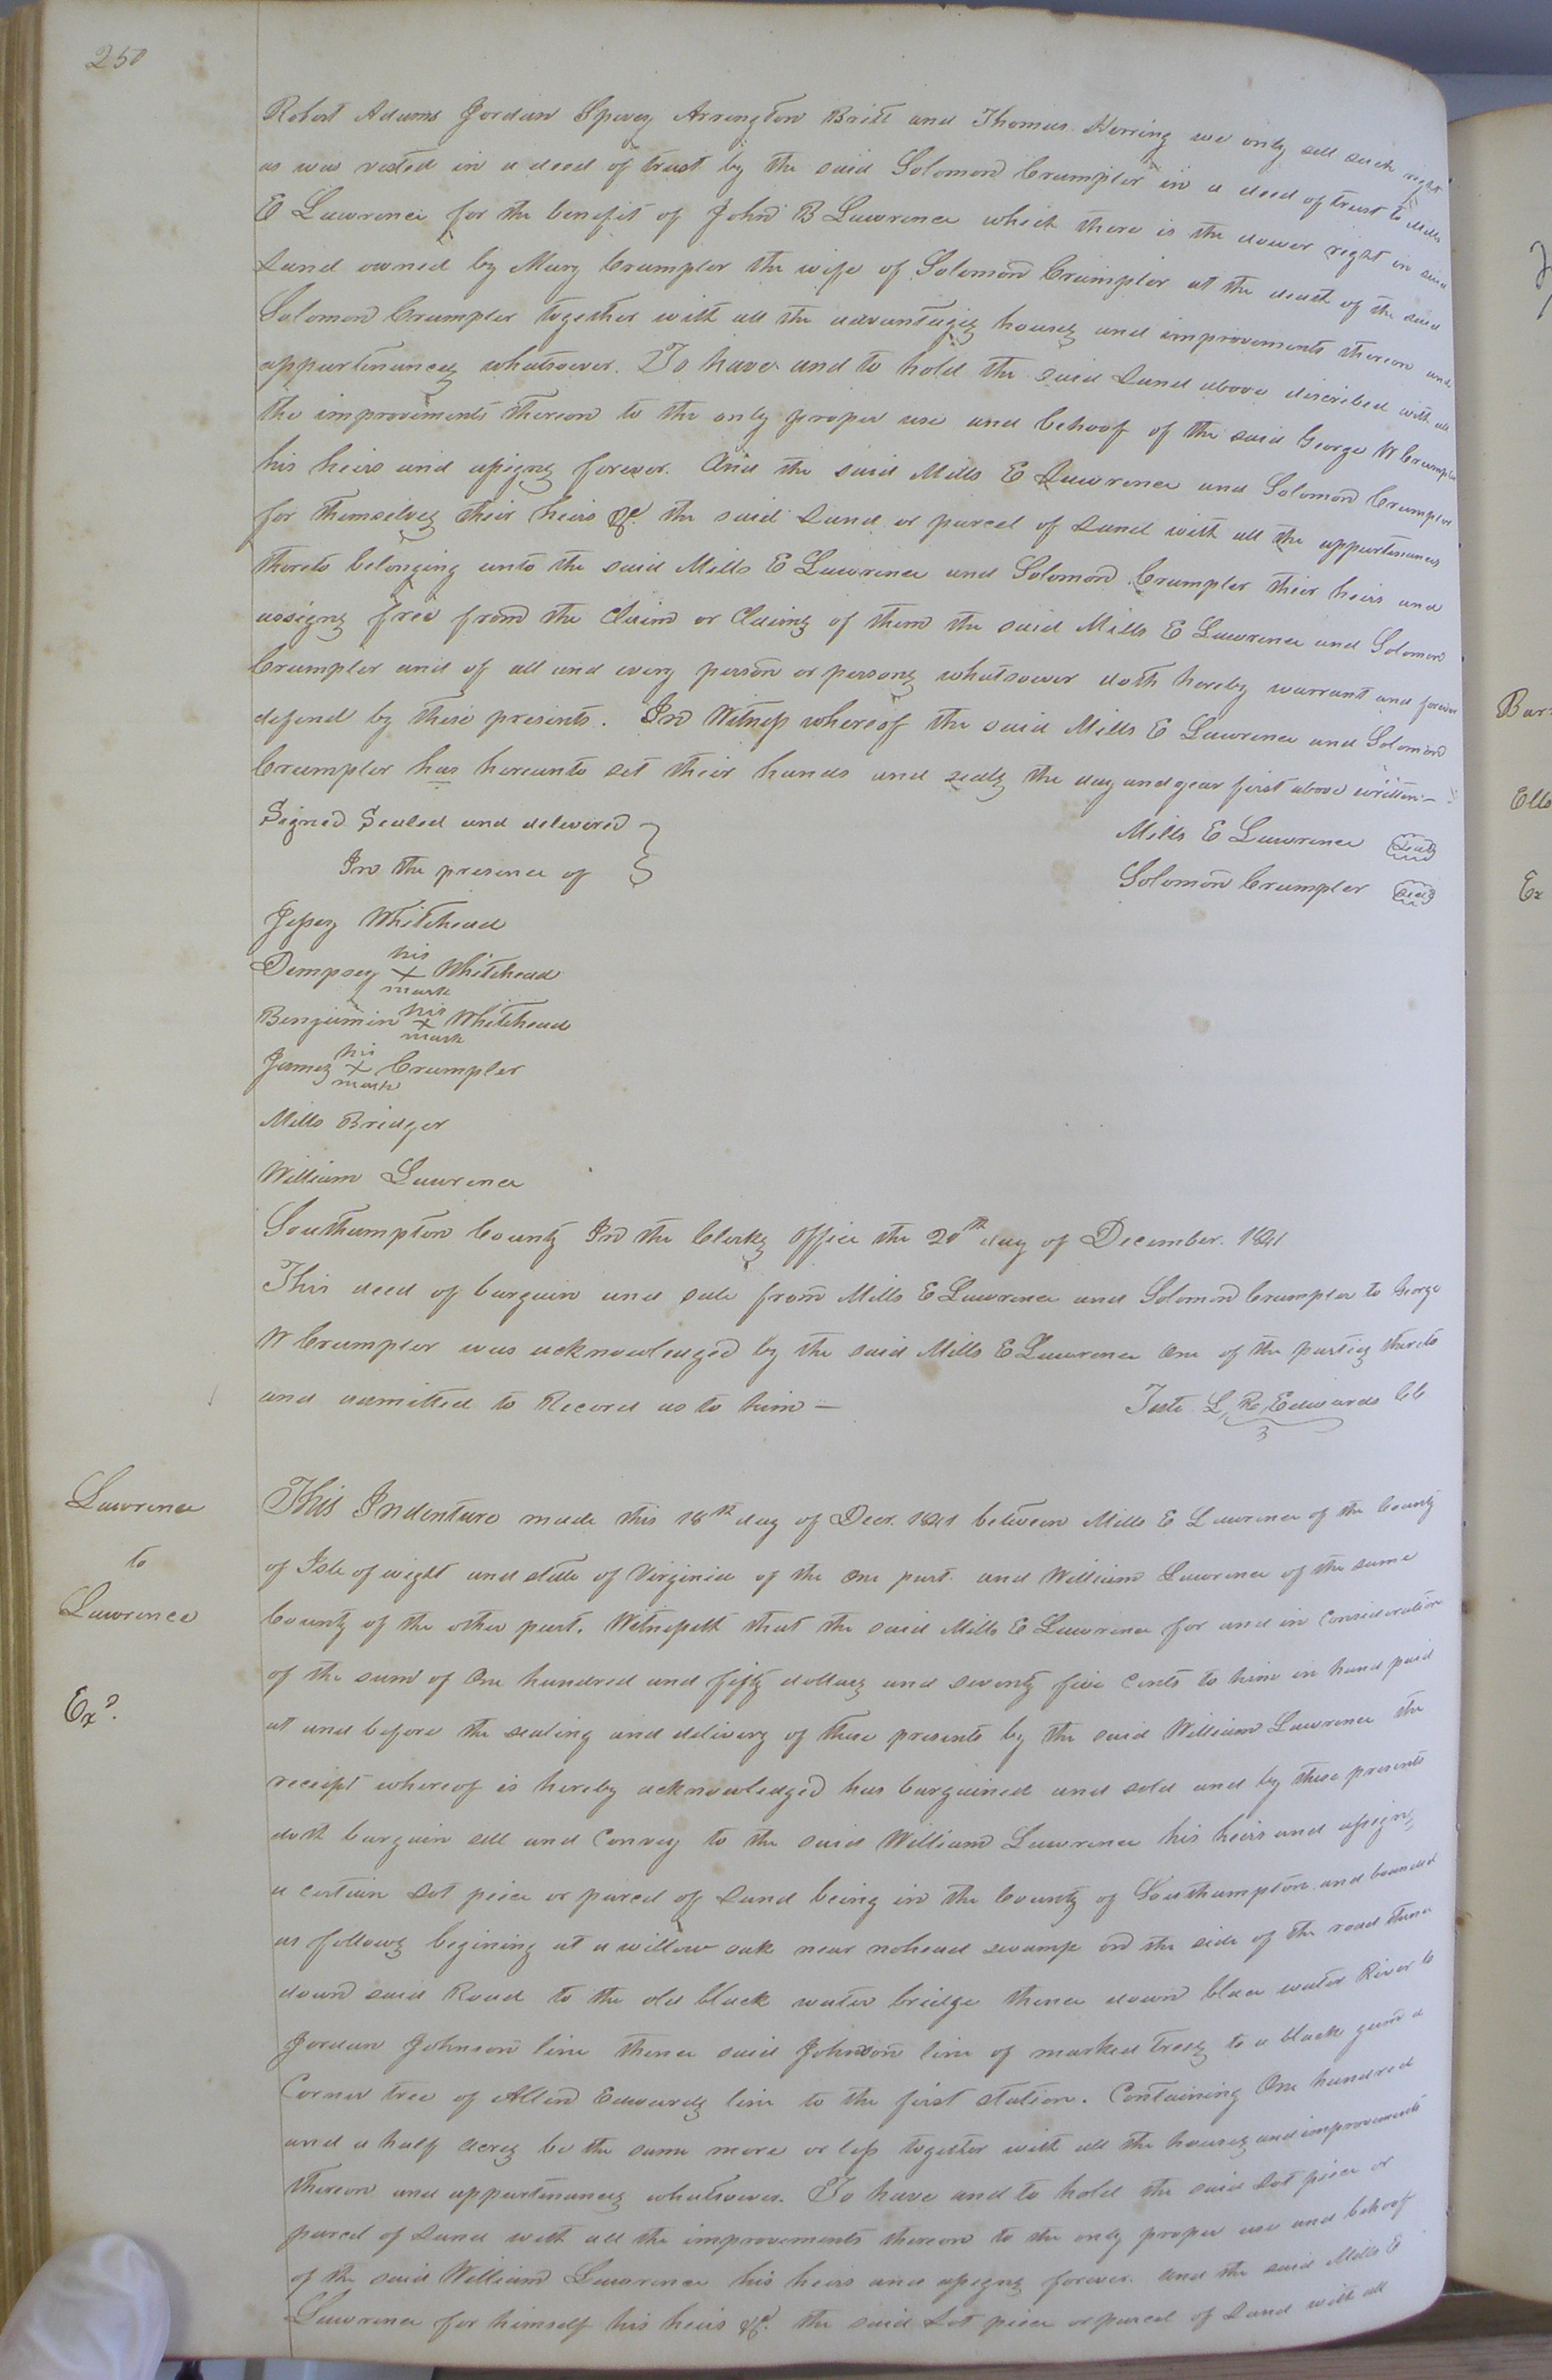 250
Robert Adams Jordan Spivey Arrington Britt and Thomas Herring we only sell such right
as was vested in a deed of trust by the said Solomon Crumpler in a deed of trust to Mills
E Lawrence for the benefit of John B Lawrence which there is the dower right in said
Land owned by Mary Crumpler the wife of Solomon Crumpler at the death of the said
Solomon Crumpler together with all the advantages houses and improvements thereon and
appurtenances whatsoever. To have and to hold the said Land above discribed with all
the improvements thereon to the only proper use and behoof of the said George W Crumpler
his heirs and assigns forever. And the said Mills E Lawrence and Solomon Crumpler
for themselves their heirs &c. the said Land or parcel of Land with all the appurtenances
thereto belonging unto the said Mills E Lawrence and Solomon Crumpler their heirs and
assigns free from the Claim or Claims of them the said Mills E Lawrence and Solomon
Crumpler and of all and every person or persons whatsoever doth hereby warrant and forever
defend by these presents. In Witness whereof the said Mills E Lawrence and Solomon
Crumpler has hereunto set their hands and seals the day and year first above written—
Signed Sealed and delivered
In the presence of
Mills E Lawrence Seal
Solomon Crumpler Seal
Jessey Whitehead
Dempsey his X mark Whitehead
Benjamin his X mark Whitehead
James his X mark Crumpler
Mills Bridger
William Lawrence
Southampton County In the Clerks Office the 20th day of December. 1841
This deed of bargain and sale from Mills E Lawrence and Solomon Crumpler to George
W Crumpler was acknowledged by the said Mills E Lawrence One of the parties thereto
and admitted to Record as to him —
Teste L R Edwards Cl
Lawrence
to
Lawrence
Exd.
This Indenture made this 18th day of Decr. 1841 between Mills E Lawrence of the County
of Isle of wight and state of Virginia of the One part and William Lawrence of the same
County of the other part. Witnesseth that the said Mills E Lawrence for and in Consideration
of the sum of One hundred and fifty dollars and seventy five Cents to him in hand paid
at and before the sealing and delivery of these presents by the said William Lawrence the
receipt whereof is hereby acknowledged has bargained and sold and by these presents
doth bargain sell and Convey to the said William Lawrence his heirs and assigns
a certain Lot piece or parcel of Land being in the County of Southampton and bounded
as follows begining at a willow oak near nohead swamp on the side of the road thence
down said Road to the old black water bridge thence down blac water River to
Jordan Johnson line thence said Johnson line of marked trees to a black gum a
Corner tree of Allen Edwards line to the first station. Containing One hundred
and a half acres be the same more or less together with all the houses and improvements
thereon and appurtenances whatsoever. To have and to hold the said Lot piece or
parcel of Land with all the improvements thereon to the only proper use and behoof
of the said William Lawrence his heirs and assigns forever. and the said Mills E
Lawrence for himself his heirs &c. the said Lot piece or parcel of Land with all
Bar
Ello
Ex